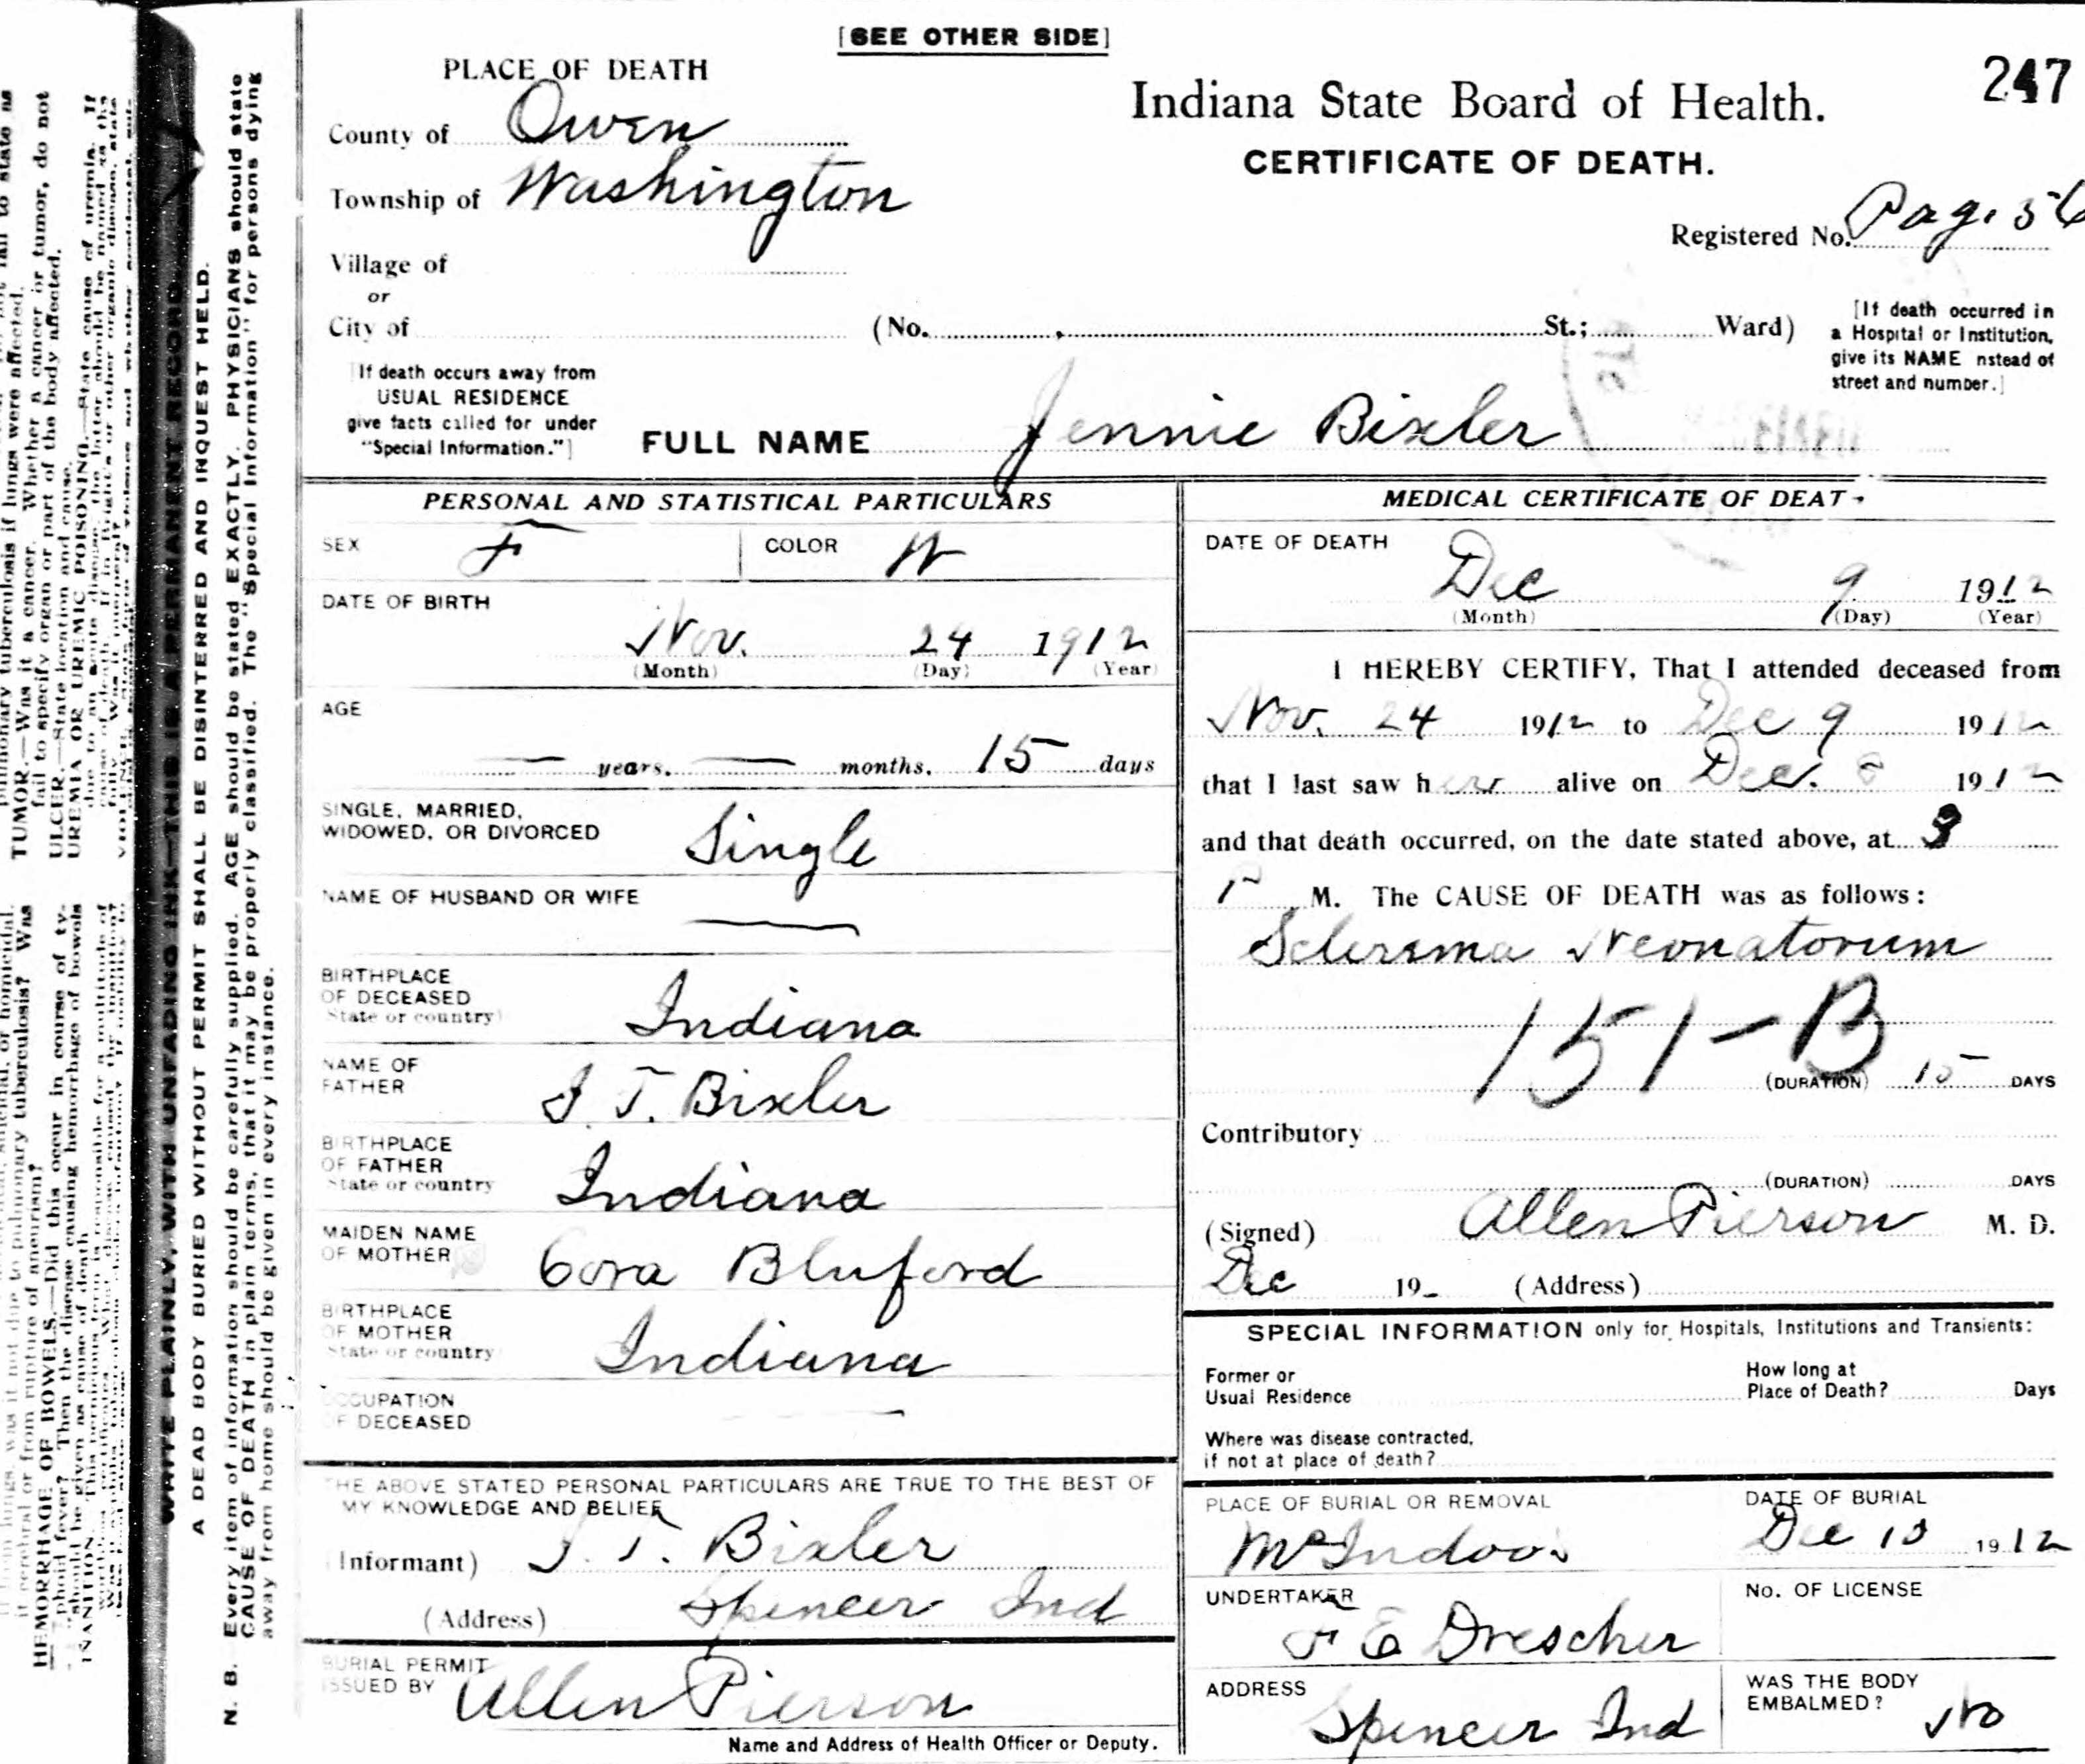 [SEE OTHER SIDE]
247
PLACE OF DEATH
Indiana State Board of Health.
CERTIFICATE OF DEATH.
County of Owen
Township of Washington
Registered No. Pag. 56
Village of
or
City of (No. , St.; Ward)
[If death occurred in
a Hospital or Institution,
give its NAME nstead of
street and number.]
If death occurs away from
USUAL RESIDENCE
give facts called for under
"Special Information."]
FULL NAME Jennie Bixler
PERSONAL AND STATISTICAL PARTICULARS
SEX F COLOR W
DATE OF BIRTH
Nov. 24 1912
(Month) (Day) (Year)
AGE
— years, — months, 15 days
SINGLE, MARRIED,
WIDOWED, OR DIVORCED Single
NAME OF HUSBAND OR WIFE —
BIRTHPLACE
OF DECEASED
State or country) Indiana
NAME OF
FATHER J T. Bixler
BIRTHPLACE
OF FATHER
State or country Indiana
MAIDEN NAME
OF MOTHER Cora Bluford
BIRTHPLACE
OF MOTHER
State or country Indiana
OCCUPATION
OF DECEASED —
THE ABOVE STATED PERSONAL PARTICULARS ARE TRUE TO THE BEST OF
MY KNOWLEDGE AND BELIEF
(Informant) J. T. Bixler
(Address) Spencer Ind
BURIAL PERMIT
ISSUED BY Allen Pierson
Name and Address of Health Officer or Deputy.
MEDICAL CERTIFICATE OF DEAT
DATE OF DEATH
Dec 9 1912
(Month) (Day) (Year)
I HEREBY CERTIFY, That I attended deceased from
Nov. 24 1912 to Dec 9 1912
that I last saw her alive on Dec. 8 1912
and that death occurred, on the date stated above, at 3
P M. The CAUSE OF DEATH was as follows:
Sclerema Neonatorum
151-B
(DURATION) 15 DAYS
Contributory
(DURATION) DAYS
(Signed) Allen Pierson M. D.
Dec 19 (Address)
SPECIAL INFORMATION only for Hospitals, Institutions and Transients:
Former or
Usual Residence
How long at
Place of Death? Days
Where was disease contracted,
if not at place of death?
PLACE OF BURIAL OR REMOVAL
McIndoo
DATE OF BURIAL
Dec 10 1912
UNDERTAKER
F E Drescher
No. OF LICENSE
ADDRESS
Spencer Ind
WAS THE BODY
EMBALMED? No
WRITE PLAINLY, WITH UNFADING INK—THIS IS A PERMANENT RECORD.
A DEAD BODY BURIED WITHOUT PERMIT SHALL BE DISINTERRED AND INQUEST HELD.
N. B. Every item of information should be carefully supplied. AGE should be stated EXACTLY. PHYSICIANS should state
CAUSE OF DEATH in plain terms, that it may be properly classified. The "Special Information" for persons dying
away from home should be given in every instance.